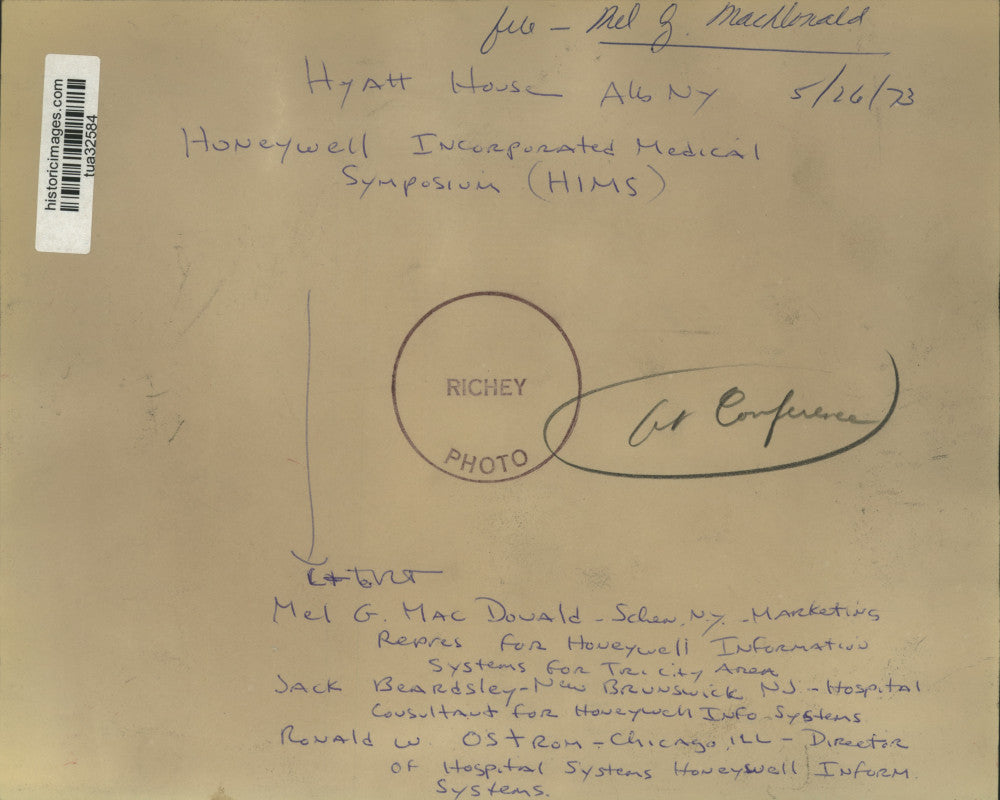 file - Mel G. MacDonald
Hyatt House Alb NY 5/26/73
Honeywell Incorporated Medical
Symposium (HIMS)
historicimages.com
tua32584
RICHEY
PHOTO
At Conference
L to RT
Mel G. Mac Donald - Schen. N.Y. - Marketing
Repres for Honeywell Information
Systems for Tri City Area
Jack Beardsley - New Brunswick NJ - Hospital
Consultant for Honeywell Info Systems
Ronald W. Ostrom - Chicago, ILL - Director
of Hospital Systems Honeyswell Inform.
Systems.